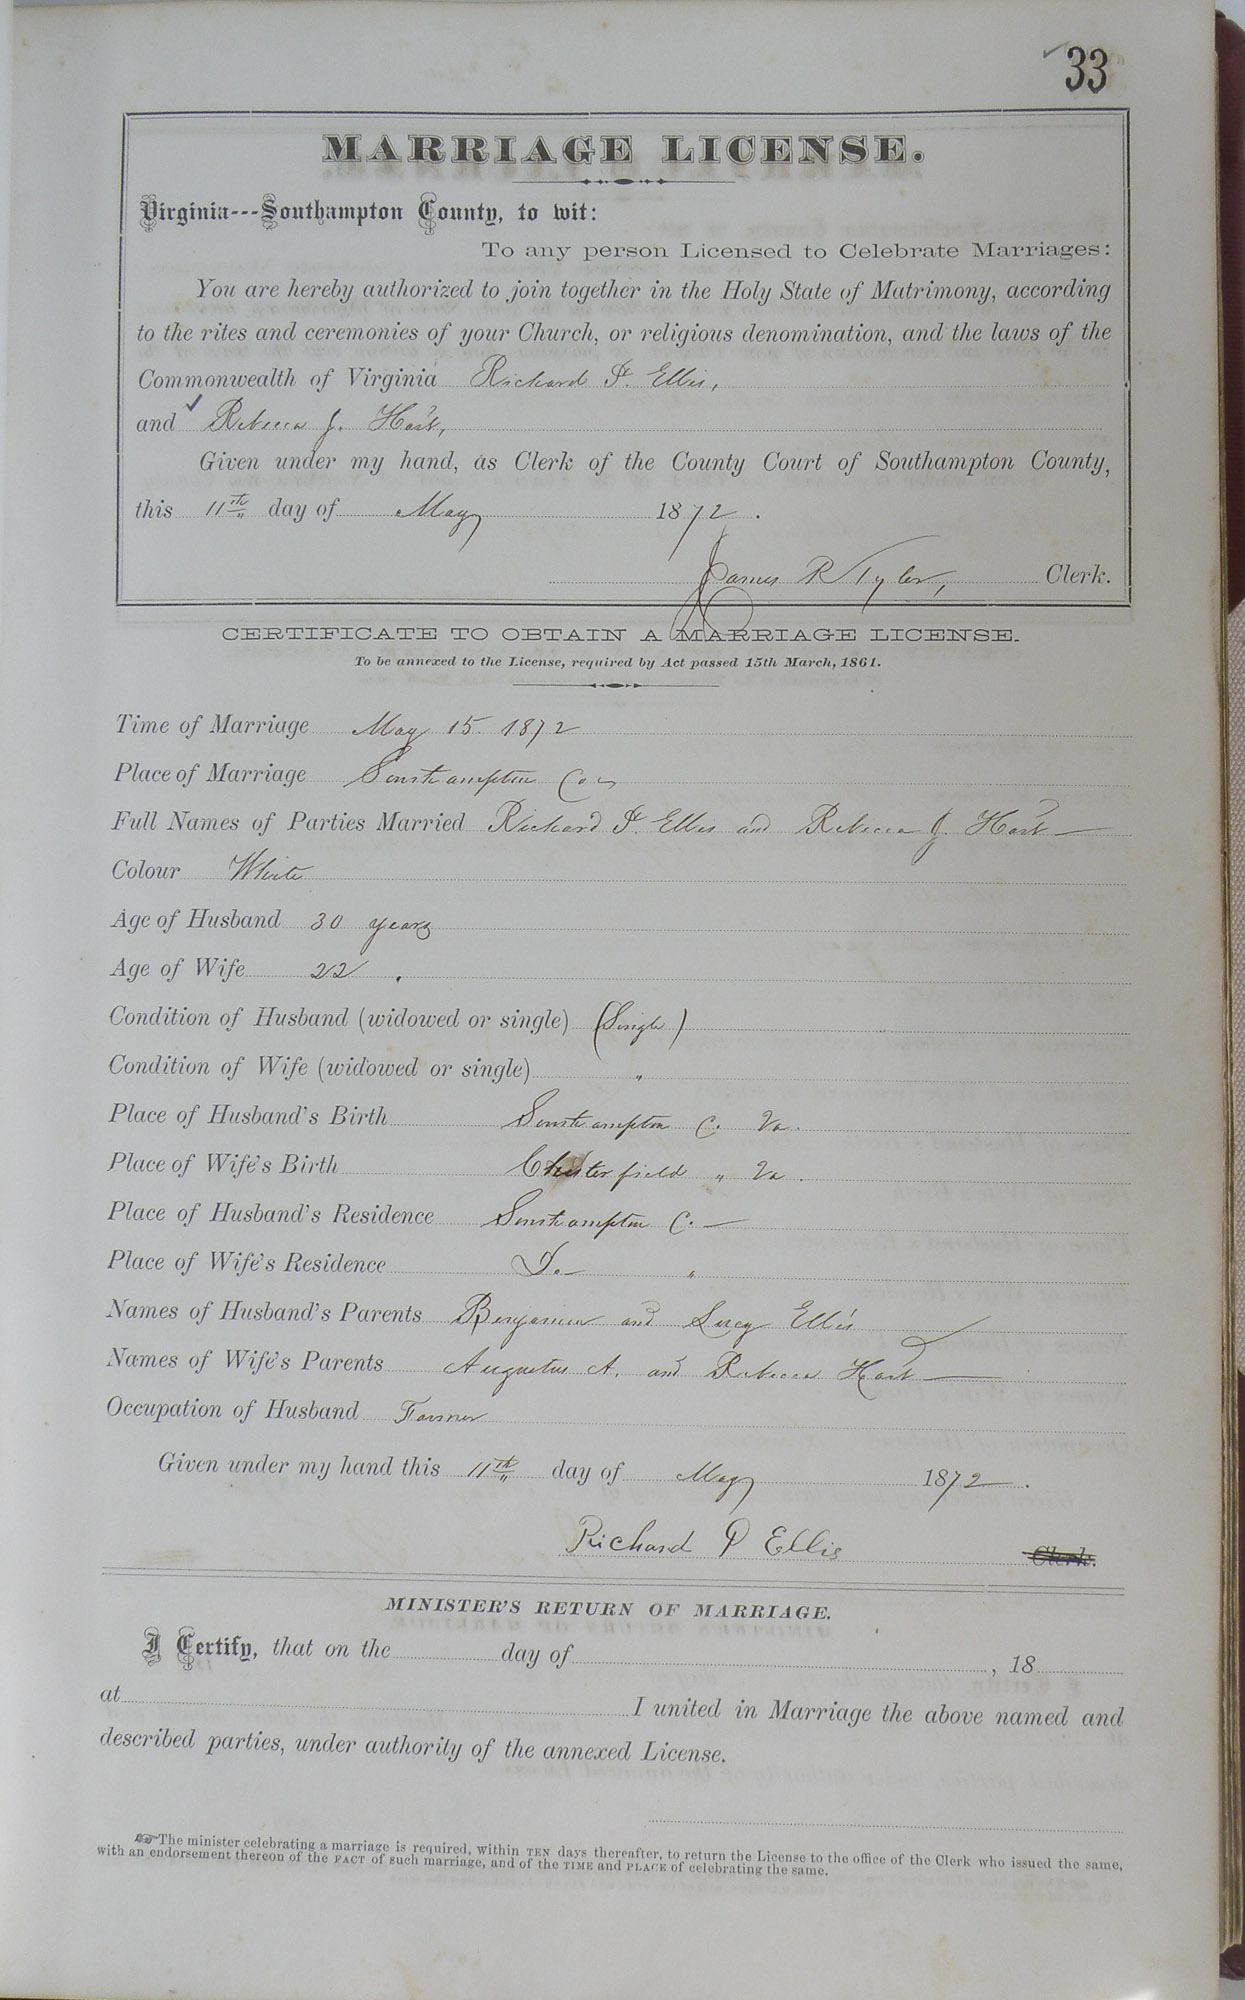 33
MARRIAGE LICENSE.
Virginia---Southampton County, to wit:
To any person Licensed to Celebrate Marriages:
You are hereby authorized to join together in the Holy State of Matrimony, according
to the rites and ceremonies of your Church, or religious denomination, and the laws of the
Commonwealth of Virginia Richard P. Ellis,
and Rebecca J. Hart,
Given under my hand, as Clerk of the County Court of Southampton County,
this 11th day of May 1872.
James R Tyler, Clerk.
CERTIFICATE TO OBTAIN A MARRIAGE LICENSE.
To be annexed to the License, required by Act passed 15th March, 1861.
Time of Marriage May 15 1872
Place of Marriage Southampton Co
Full Names of Parties Married Richard P. Ellis and Rebecca J. Hart —
Colour White
Age of Husband 30 years
Age of Wife 22 .
Condition of Husband (widowed or single) (Single)
Condition of Wife (widowed or single) "
Place of Husband's Birth Southampton C. Va.
Place of Wife's Birth Chesterfield " Va.
Place of Husband's Residence Southampton C. —
Place of Wife's Residence Do — "
Names of Husband's Parents Benjamin and Lucy Ellis
Names of Wife's Parents Augustus A. and Rebecca Hart —
Occupation of Husband Farmer
Given under my hand this 11th day of May 1872.
Richard P Ellis Clerk.
MINISTER'S RETURN OF MARRIAGE.
I Certify, that on the day of , 18
at I united in Marriage the above named and
described parties, under authority of the annexed License.
☞The minister celebrating a marriage is required, within TEN days thereafter, to return the License to the office of the Clerk who issued the same,
with an endorsement thereon of the FACT of such marriage, and of the TIME and PLACE of celebrating the same.